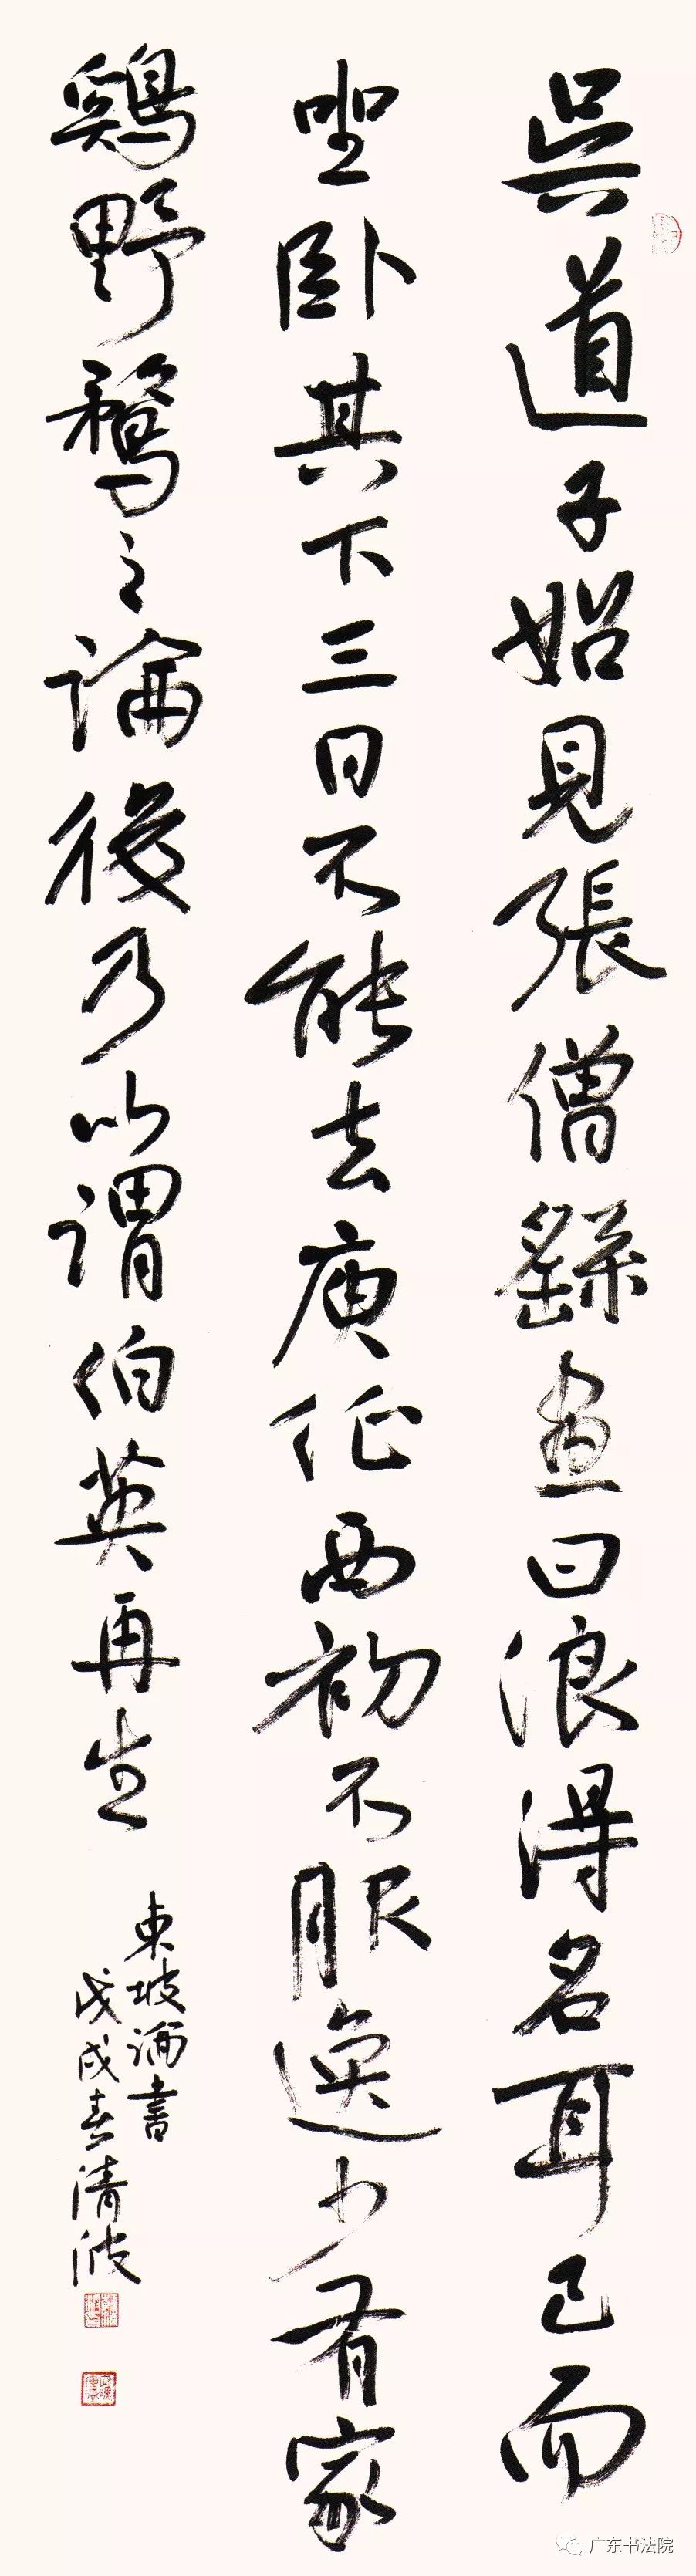 吳道子始見張僧繇畫曰浪得名耳已而
坐卧其下三日不能去庾征西初不服逸少有家
鷄野鶩之論後乃以謂伯英再生
東坡論書
戊戌春清波
广东书法院